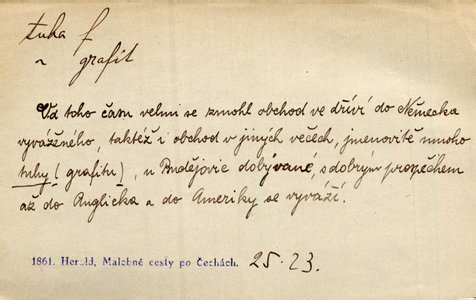 tuha f
~ grafit
Od toho času velmi se zmohl obchod ve dříví do Německa
vyváženého, taktéž i obchod v jiných věcech, jmenovitě mnoho
tuhy (grafitu), u Budějovic dobývané, s dobrým prospěchem
až do Anglicka a do Ameriky se vyváží.
1861. Herold, Malebné cesty po Čechách. 25.23.